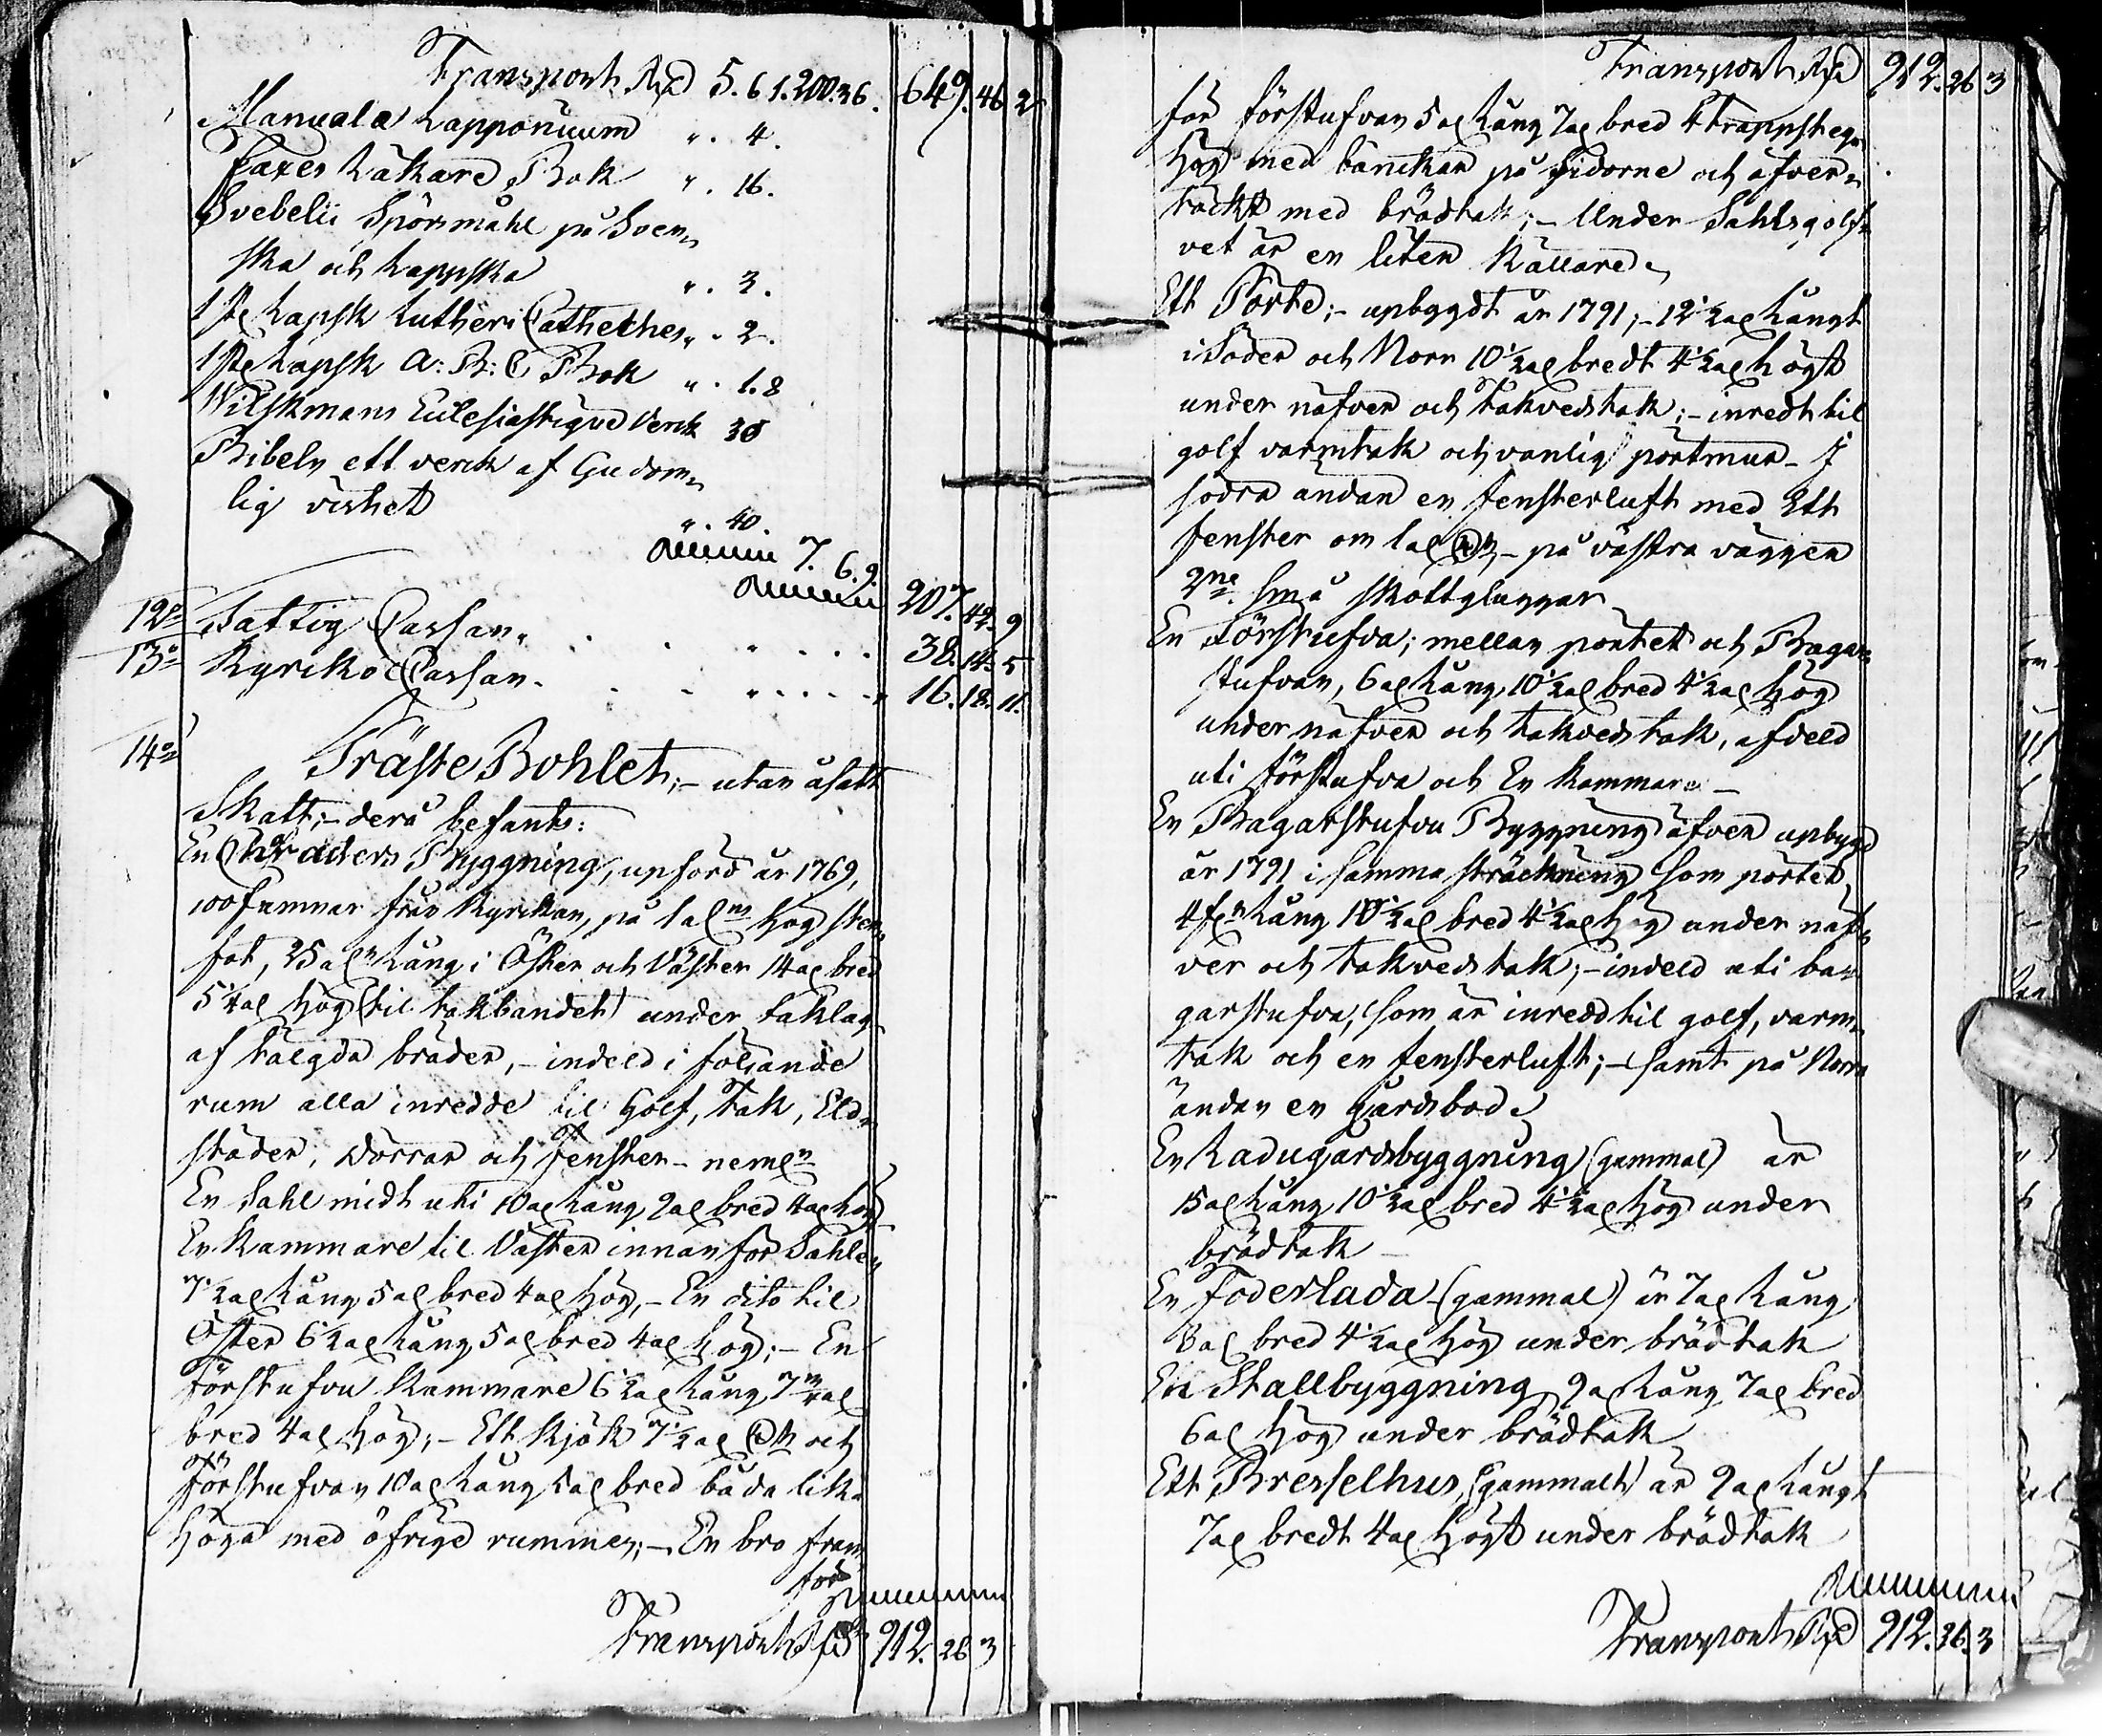 Transport Rd 5. 6 1. 200. 36. 649. 46 2
Manuale Lapponicum ". 4.
Faxes Läkare Bok ". 16.
Svebelii Spörsmåhl på Sven-
ska och Lappska ". 3.
1 st Lapsk Lutheri Cathethes ". 2.
1 st Lapsk A: B: C Bok ". 1. 8
Wilskmans Eclesiastique Verk 30
Bibeln ett verck af Gudom-
lig vishet ". 40.
7. 6. 9. 207. 42. 9
12o Fattig Cassan . . . . 38. 14. 5
13o Kyriko Cassan . . . . 16. 18. 11.
14o Präste Bohlet; – utan åsatt
Skatt; – derå befants:
En Characters Byggning, upförd år 1769,
100 famnar från Kyrkan, på 1 aln hög sten-
fot, 25 aln Lång i Öster och Väster 14 al bred
5 1/4 al hög (til takbandet) under taklag
af tälgda bräder, – indeld i följande
rum alla inredde til Golf, Tak, Eld-
städer, Dörrar och Fenster – neml
En Sahl midt uti 10 al Lång 9 al bred 4 al hög
En Kammare til Väster innan för Sahlen
7 1/2 al Lång 5 al bred 4 al hög, – En dito til
Öster 6 1/2 al Lång 5 al bred 4 al hög; – En
Förstufvu Kammare 6 1/2 al Lång 7 al
bred 4 al hög; – Ett Kjök 7 1/2 al och
Förstufvan 10 al Lång 5 al bred båda lika
höga med öfrige rummen; – En bro fram
för
Transport Rd 912. 26 3
Transport Rd 912. 26 3
för förstufvan 5 al Lång 7 al bred 4 trappsteg
hög med bänckar på sidorne och öfver-
täckt med brädtak; – Under Sahlsgolf-
vet är en liten Källare
Ett Pörte; – upbygdt år 1791; – 12 1/2 al Långt
i Söder och Norr 10 1/2 al bredt 4 1/2 al högt
under näfver och takvedstak; – inredt til
golf varmtak och vanlig pörtmur – I
södra ändan en fensterluft med Ett
fenster om 1 al – på västra väggen
2ne små skottgluggar
En Förstufva; mellan pörtet och Bagar-
stufvan, 6 al Lång 10 1/2 al bred 4 1/2 al hög
under näfver och takvedstak, afdeld
uti förstufva och En Kammare –
En Bagarstufvu Byggning äfven upbygd
år 1791 i samma sträckning som pörtet,
4 f Lång 10 1/2 al bred 4 1/2 al hög under näf-
ver och takvedstak; – indeld uti ba-
garstufva, som är inredd til golf, varm-
tak och en fensterluft; – samt på Norra
ändan en gårdsbod
En Ladugårdsbyggning (gammal) är
15 al Lång 10 1/2 al bred 4 1/2 al hög under
brädtak –
En Foderlada – (gammal) är 7 al Lång
6 al bred 4 1/2 al hög under brädtak
En Stallbyggning 9 al Lång 7 al bred
6 al hög under brädtak
Ett Bresselhus, (gammalt) är 9 al Långt
7 al bredt 4 al högt under brädtak
Transport Rd 912. 36. 3